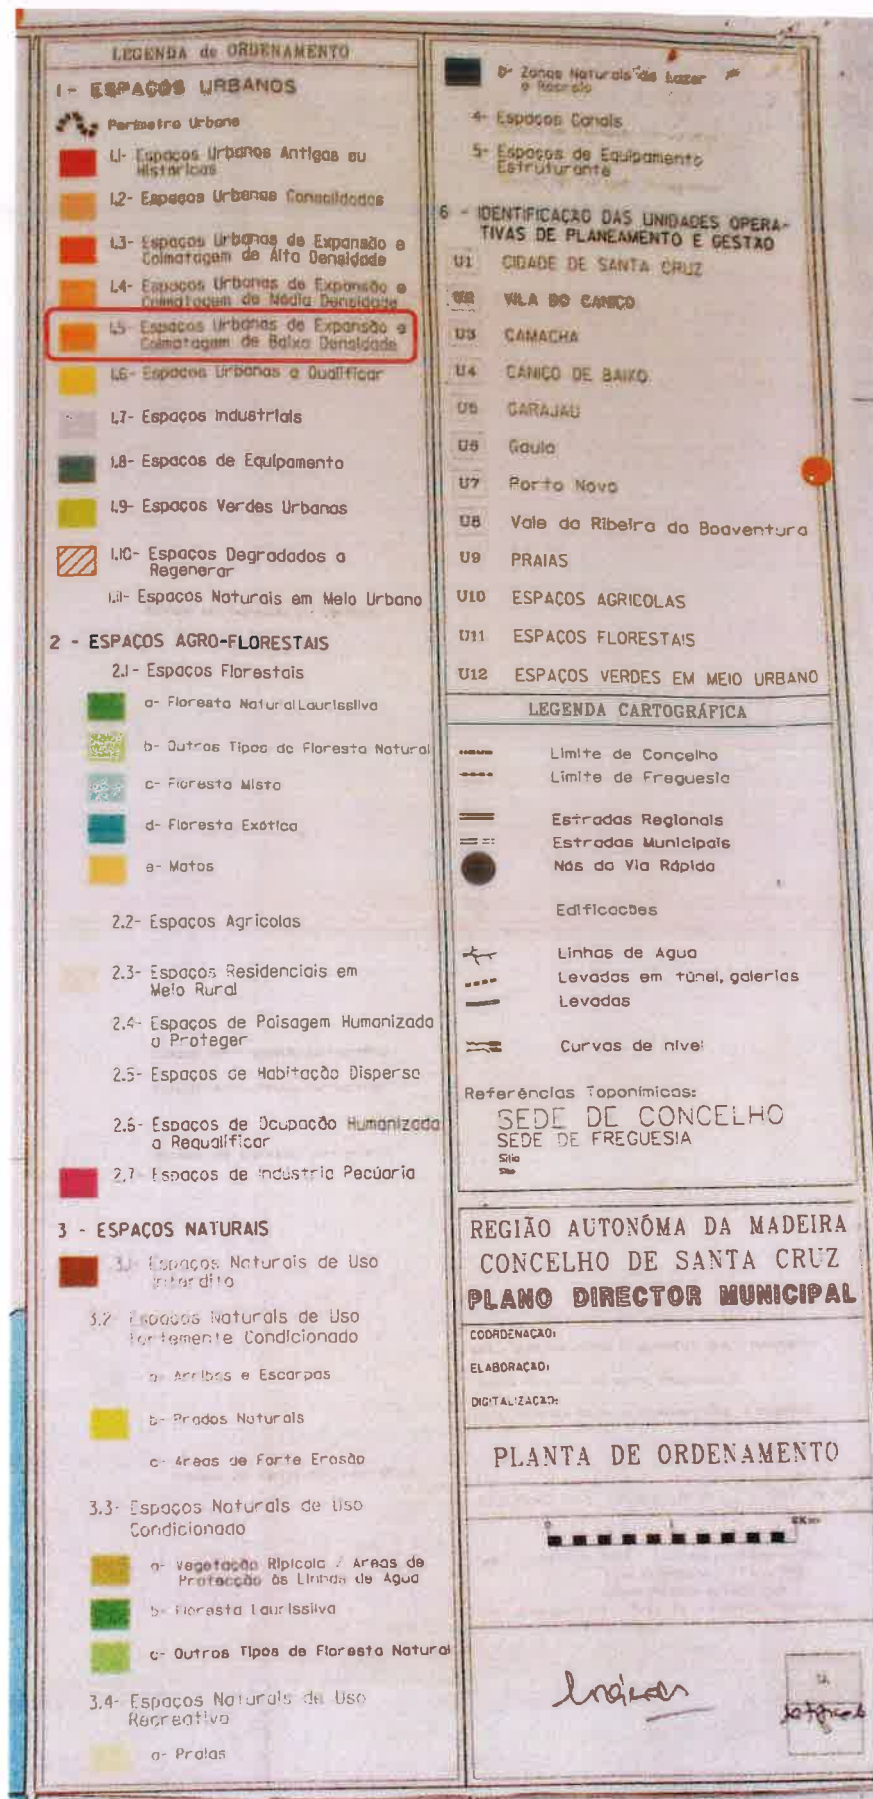 LEGENDA de ORDENAMENTO
1 - ESPAÇOS URBANOS
Perimetro Urbano
1.1- Espaços Urbanos Antigos ou
Historicos
1.2- Espaços Urbanos Consolidados
1.3- Espaços Urbanos de Expansão e
Colmatagem de Alta Densidade
1.4- Espaços Urbanos de Expansão e
Colmatagem de Média Densidade
1.5- Espaços Urbanos de Expansão e
Colmatagem de Baixa Densidade
1.6- Espaços Urbanos a Qualificar
1.7- Espaços Industriais
1.8- Espacos de Equipamento
1.9- Espaços Verdes Urbanos
1.10- Espaços Degradados a
Regenerar
1.11- Espaços Naturais em Meio Urbano
2 - ESPAÇOS AGRO-FLORESTAIS
2.1- Espaços Florestais
a- Floresta Natural Laurissilva
b- Outros Tipos de Floresta Natural
c- Floresta Mista
d- Floresta Exótica
e- Matos
2.2- Espaços Agricolas
2.3- Espaços Residenciais em
Meio Rural
2.4- Espaços de Paisagem Humanizada
a Proteger
2.5- Espaços de Habitação Dispersa
2.6- Espaços de Ocupação Humanizada
a Requalificar
2.7- Espaços de Industria Pecúaria
3 - ESPAÇOS NATURAIS
3.1- Espaços Naturais de Uso
Interdito
3.2- Espaços Naturais de Uso
Fortemente Condicionado
a- Arribas e Escarpas
b- Prados Naturais
c- Areas de Forte Erosão
3.3- Espaços Naturais de Uso
Condicionado
a- Vegetação Ripicola / Areas de
Protecção às Linhas de Agua
b- Floresta Laurissilva
c- Outros Tipos de Floresta Natural
3.4- Espaços Naturais de Uso
Recreativo
a- Praias
b- Zonas Naturais de Lazer
e Recreio
4- Espaços Canais
5- Espaços de Equipamento
Estruturante
6 - IDENTIFICAÇÃO DAS UNIDADES OPERA-
TIVAS DE PLANEAMENTO E GESTÃO
U1 CIDADE DE SANTA CRUZ
U2 VILA DO CANIÇO
U3 CAMACHA
U4 CANIÇO DE BAIXO
U5 GARAJAU
U6 Gaula
U7 Porto Novo
U8 Vale da Ribeira da Boaventura
U9 PRAIAS
U10 ESPAÇOS AGRICOLAS
U11 ESPAÇOS FLORESTAIS
U12 ESPAÇOS VERDES EM MEIO URBANO
LEGENDA CARTOGRÁFICA
Limite de Concelho
Limite de Freguesia
Estradas Regionais
Estradas Municipais
Nós da Via Rápida
Edificacões
Linhas de Agua
Levadas em túnel, galerias
Levadas
Curvas de nivel
Referências Toponímicas:
SEDE DE CONCELHO
SEDE DE FREGUESIA
Sitio
REGIÃO AUTONÓMA DA MADEIRA
CONCELHO DE SANTA CRUZ
PLANO DIRECTOR MUNICIPAL
COORDENAÇÃO:
ELABORAÇÃO:
DIGITALIZAÇÃO:
PLANTA DE ORDENAMENTO
0 1 2Km